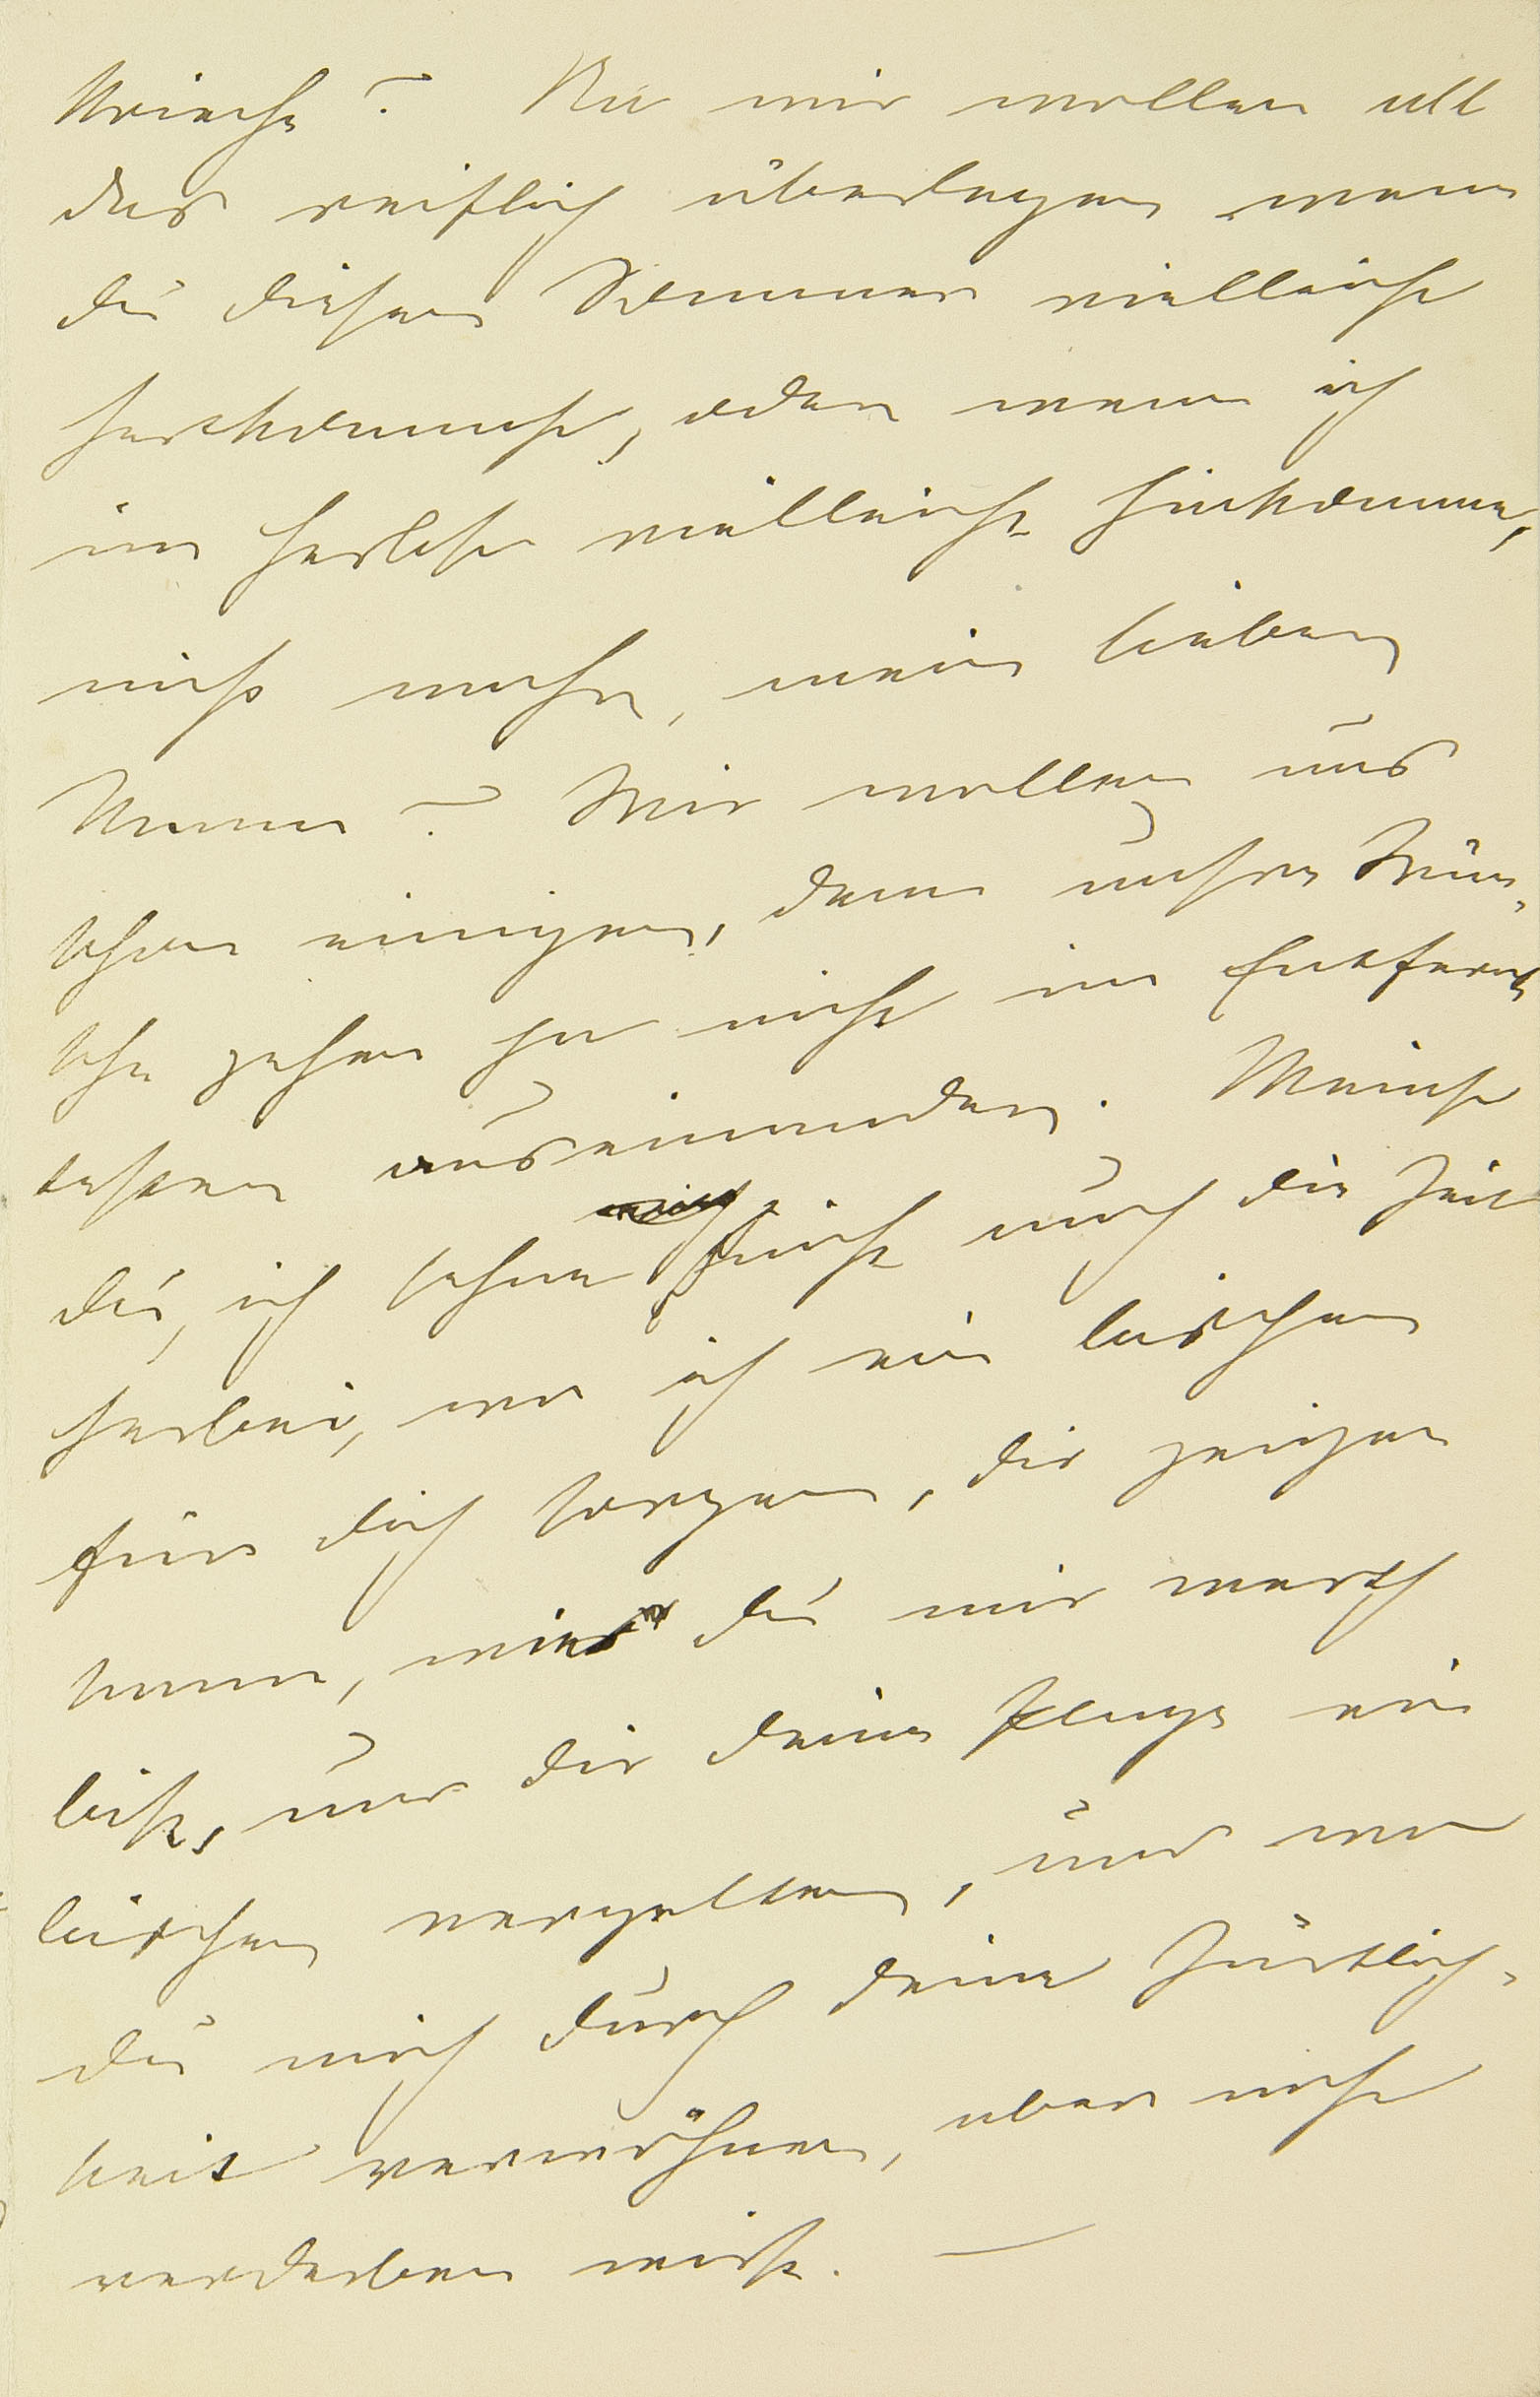 Kriech? Na wir wollen all
das reiflich überlegen wenn
du diesen Sommer vielleicht
herkommst, oder wenn ich
im Herbst vielleicht hinkomme,
nicht wahr, mein lieber
Mann? Wir wollen uns
schon einigen, denn unsre Wün-
sche gehen ja nicht im Entfern-
testen auseinander. Meinst
du, ich sehne nicht auch die Zeit
herbei, wo ich ein bischen
für dich sorgen, dir zeigen
kann, wie du mir werth
bist, und dir deine Pflege ein
bischen vergelten, und wo
du mich durch deine Zärtlich-
keit verwöhnen, aber nicht
verderben wirst. —